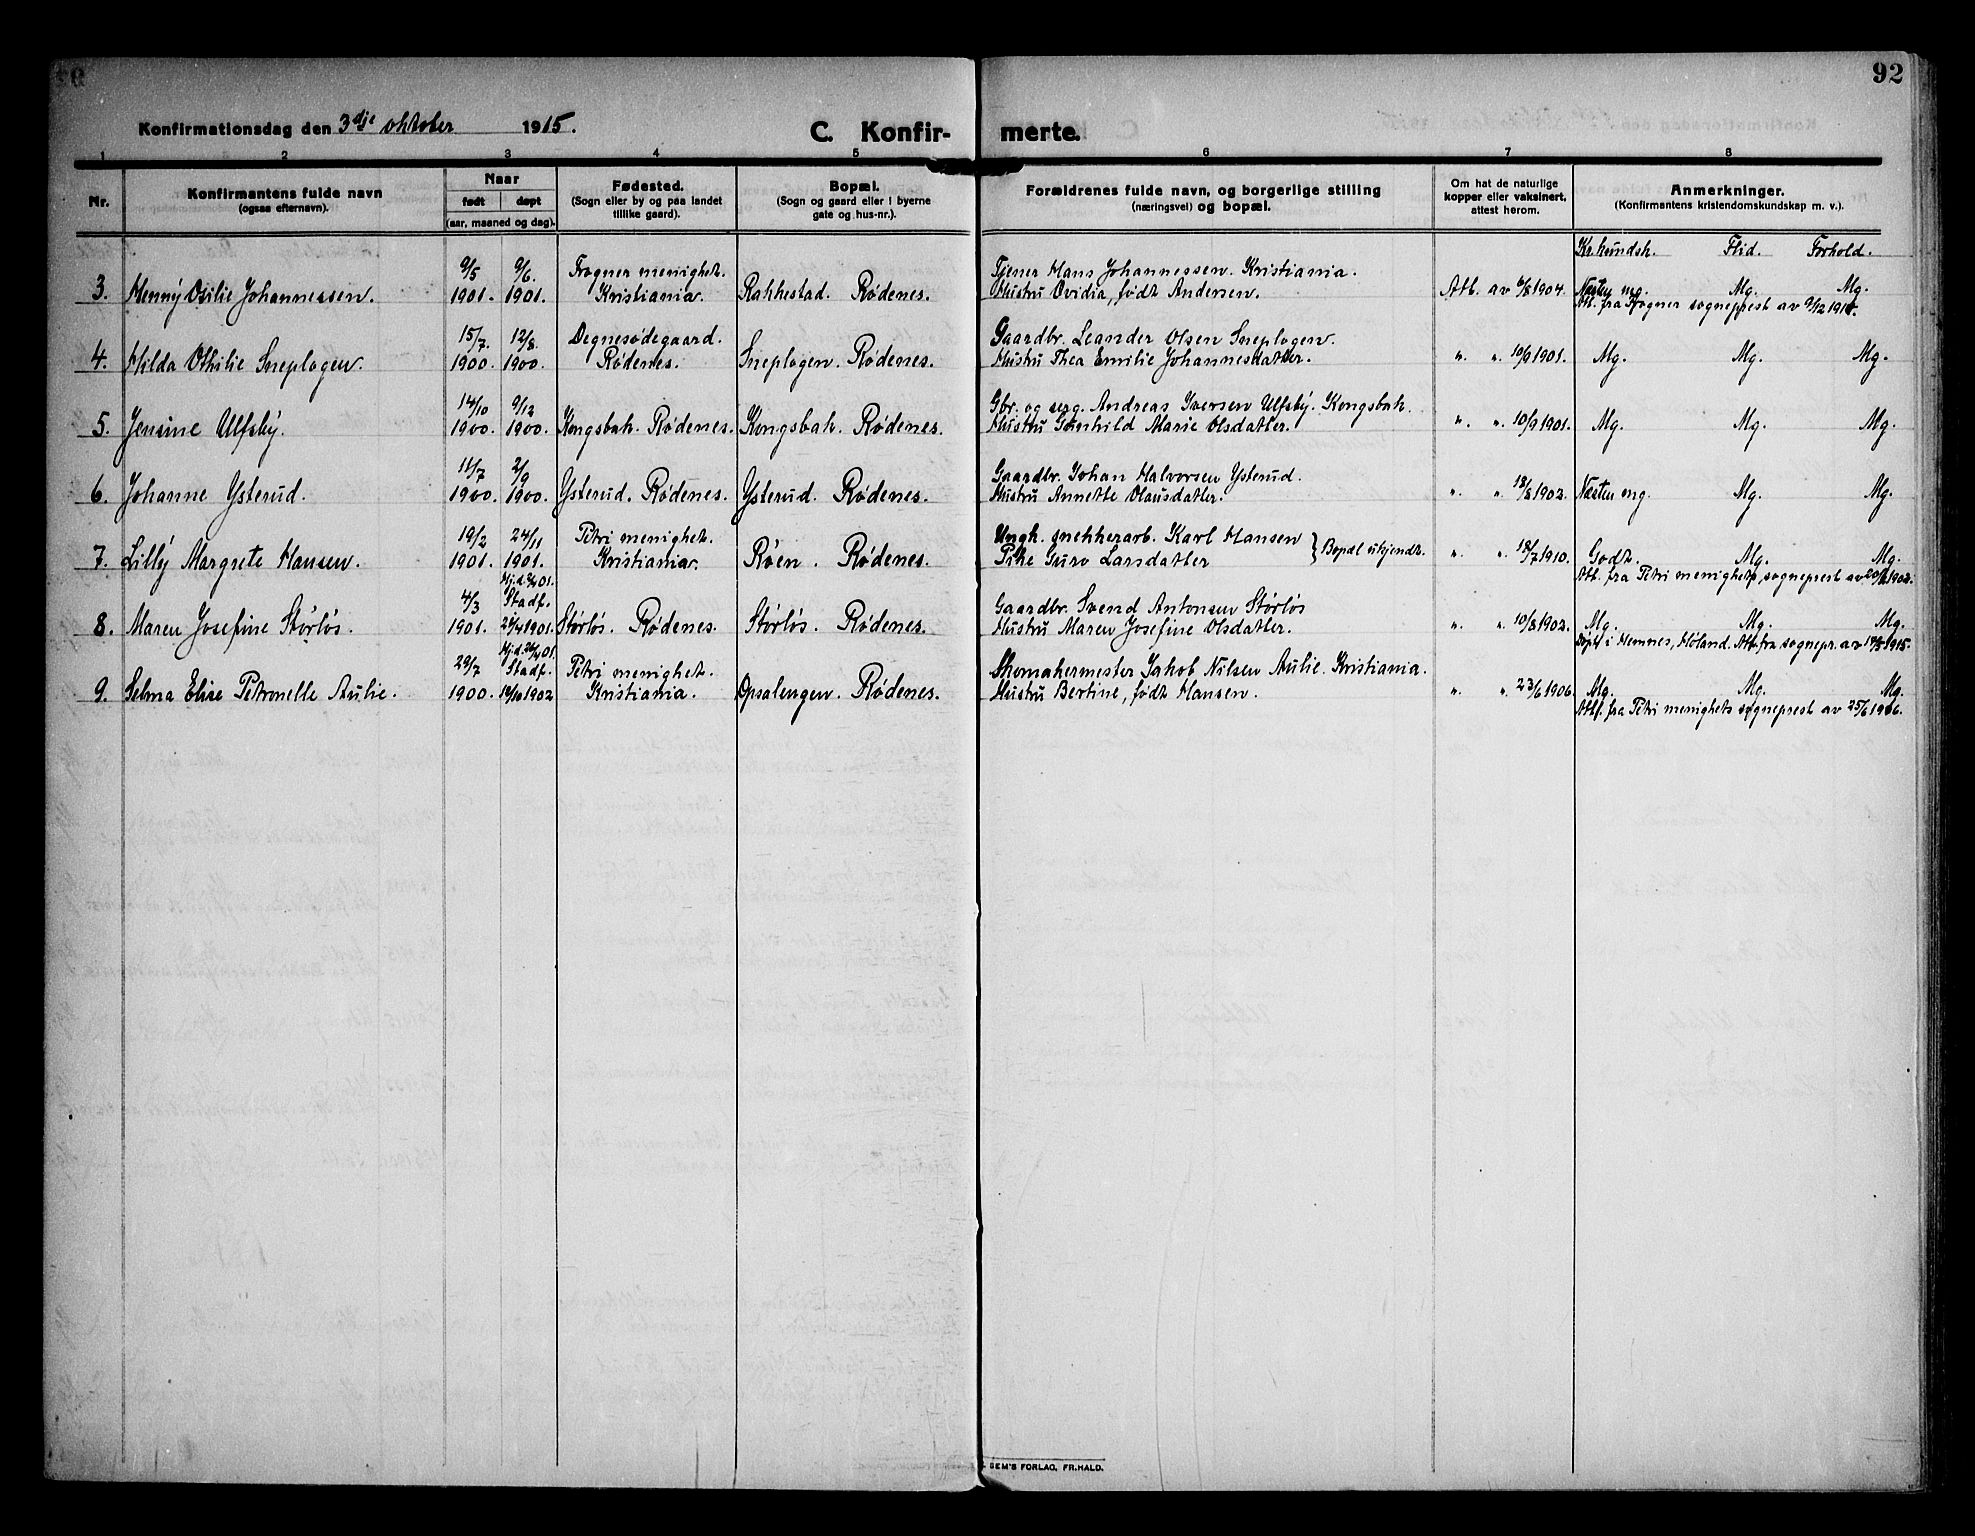 92
Konfirmationsdag den 3dje oktober 1915.
C. Konfir- merte.
1 2 3 4 5 6 7 8
Nr.
Konfirmantens fulde navn
(ogsaa efternavn).
Naar
født døpt
(aar, maaned og dag).
Fødested.
(Sogn eller by og paa landet
tillike gaard).
Bopæl.
(Sogn og gaard eller i byerne
gate og hus-nr.).
Forældrenes fulde navn, og borgerlige stilling
(næringsvei) og bopæl.
Om hat de naturlige
kopper eller vaksinert,
attest herom.
Anmerkninger.
(Konfirmantens kristendomskundskap m. v.).
Kr.kundsk. Flid. Forhold.
9/5 9/6. Frogner menighet. Tjener Hans Johannessen. Kristiania.
3. Henny Otilie Johannessen. 1901. 1901. Kristiania. Rakkestad. Rødenes. Hustru Ovidia, født Andersen. Att. av 6/8 1904. Næsten mg. Mg. Mg.
Att. fra Frogner sogneprest av 9/12
15/7. 12/8 Degnesødegaard. Gaardbr. Leander Olsen Sneplogen.
4. Hilda Othilie Sneplogen. 1900. 1900. Rødenes. Sneplogen. Rødenes. Hustru Thea Emilie Johannesdatter. " " 10/9 1901. Mg. Mg. Mg.
14/10 9/12 Gbr. og serg. Andreas Iversen Ulfsby. Kongsbak.
5. Jensine Ulfsby. 1900. 1900. Kongsbak. Rødenes. Kongsbak. Rødenes. Hustru Gunhild Marie Olsdatter. " " 10/9 1901. Mg. Mg. Mg.
11/7 2/9 Gaardbr. Johan Halvorsen Ysterud.
6. Johanne Ysterud. 1900. 1900. Ysterud. Rødenes. Ysterud. Rødenes. Hustru Annette Olausdatter. " " 18/8 1902. Næsten mg. Mg. Mg.
19/2 24/11 Petri menighet. Ungk. snekkerarb. Karl Hansen
7. Lilly Margrete Hansen. 1901. 1901. Kristiania. Røen. Rødenes. Pike Guro Larsdatter } Bopæl ukjendt. " " 18/7 1910. Godt. Mg. Mg.
Att. fra Petri menighets sogneprest av 1902.
4/3 Stadf. Gaardbr. Svend Antonsen Størløs
8. Maren Josefine Størløs. 1901. 1901. Størløs. Rødenes. Størløs. Rødenes. Hustru Maren Josefine Olsdatter. " " 10/8 1902. Mg. Mg. Mg.
Døpt i Hemnes, Høland. Att. fra sognepr. av 1915.
29/7 Stadf. Petri menighet. Skomakermester Jakob Nilsen Aulie. Kristiania.
9. Selma Elise Petronelle Aulie. 1900. 1902 Kristiania. Opsalengen. Rødenes. Hustru Bertine, født Hansen. " " 23/6 1906. Mg. Mg. Mg.
Att. fra Petri menighets sogneprest av 25/6 1906.
SEM'S FORLAG, FR.HALD.